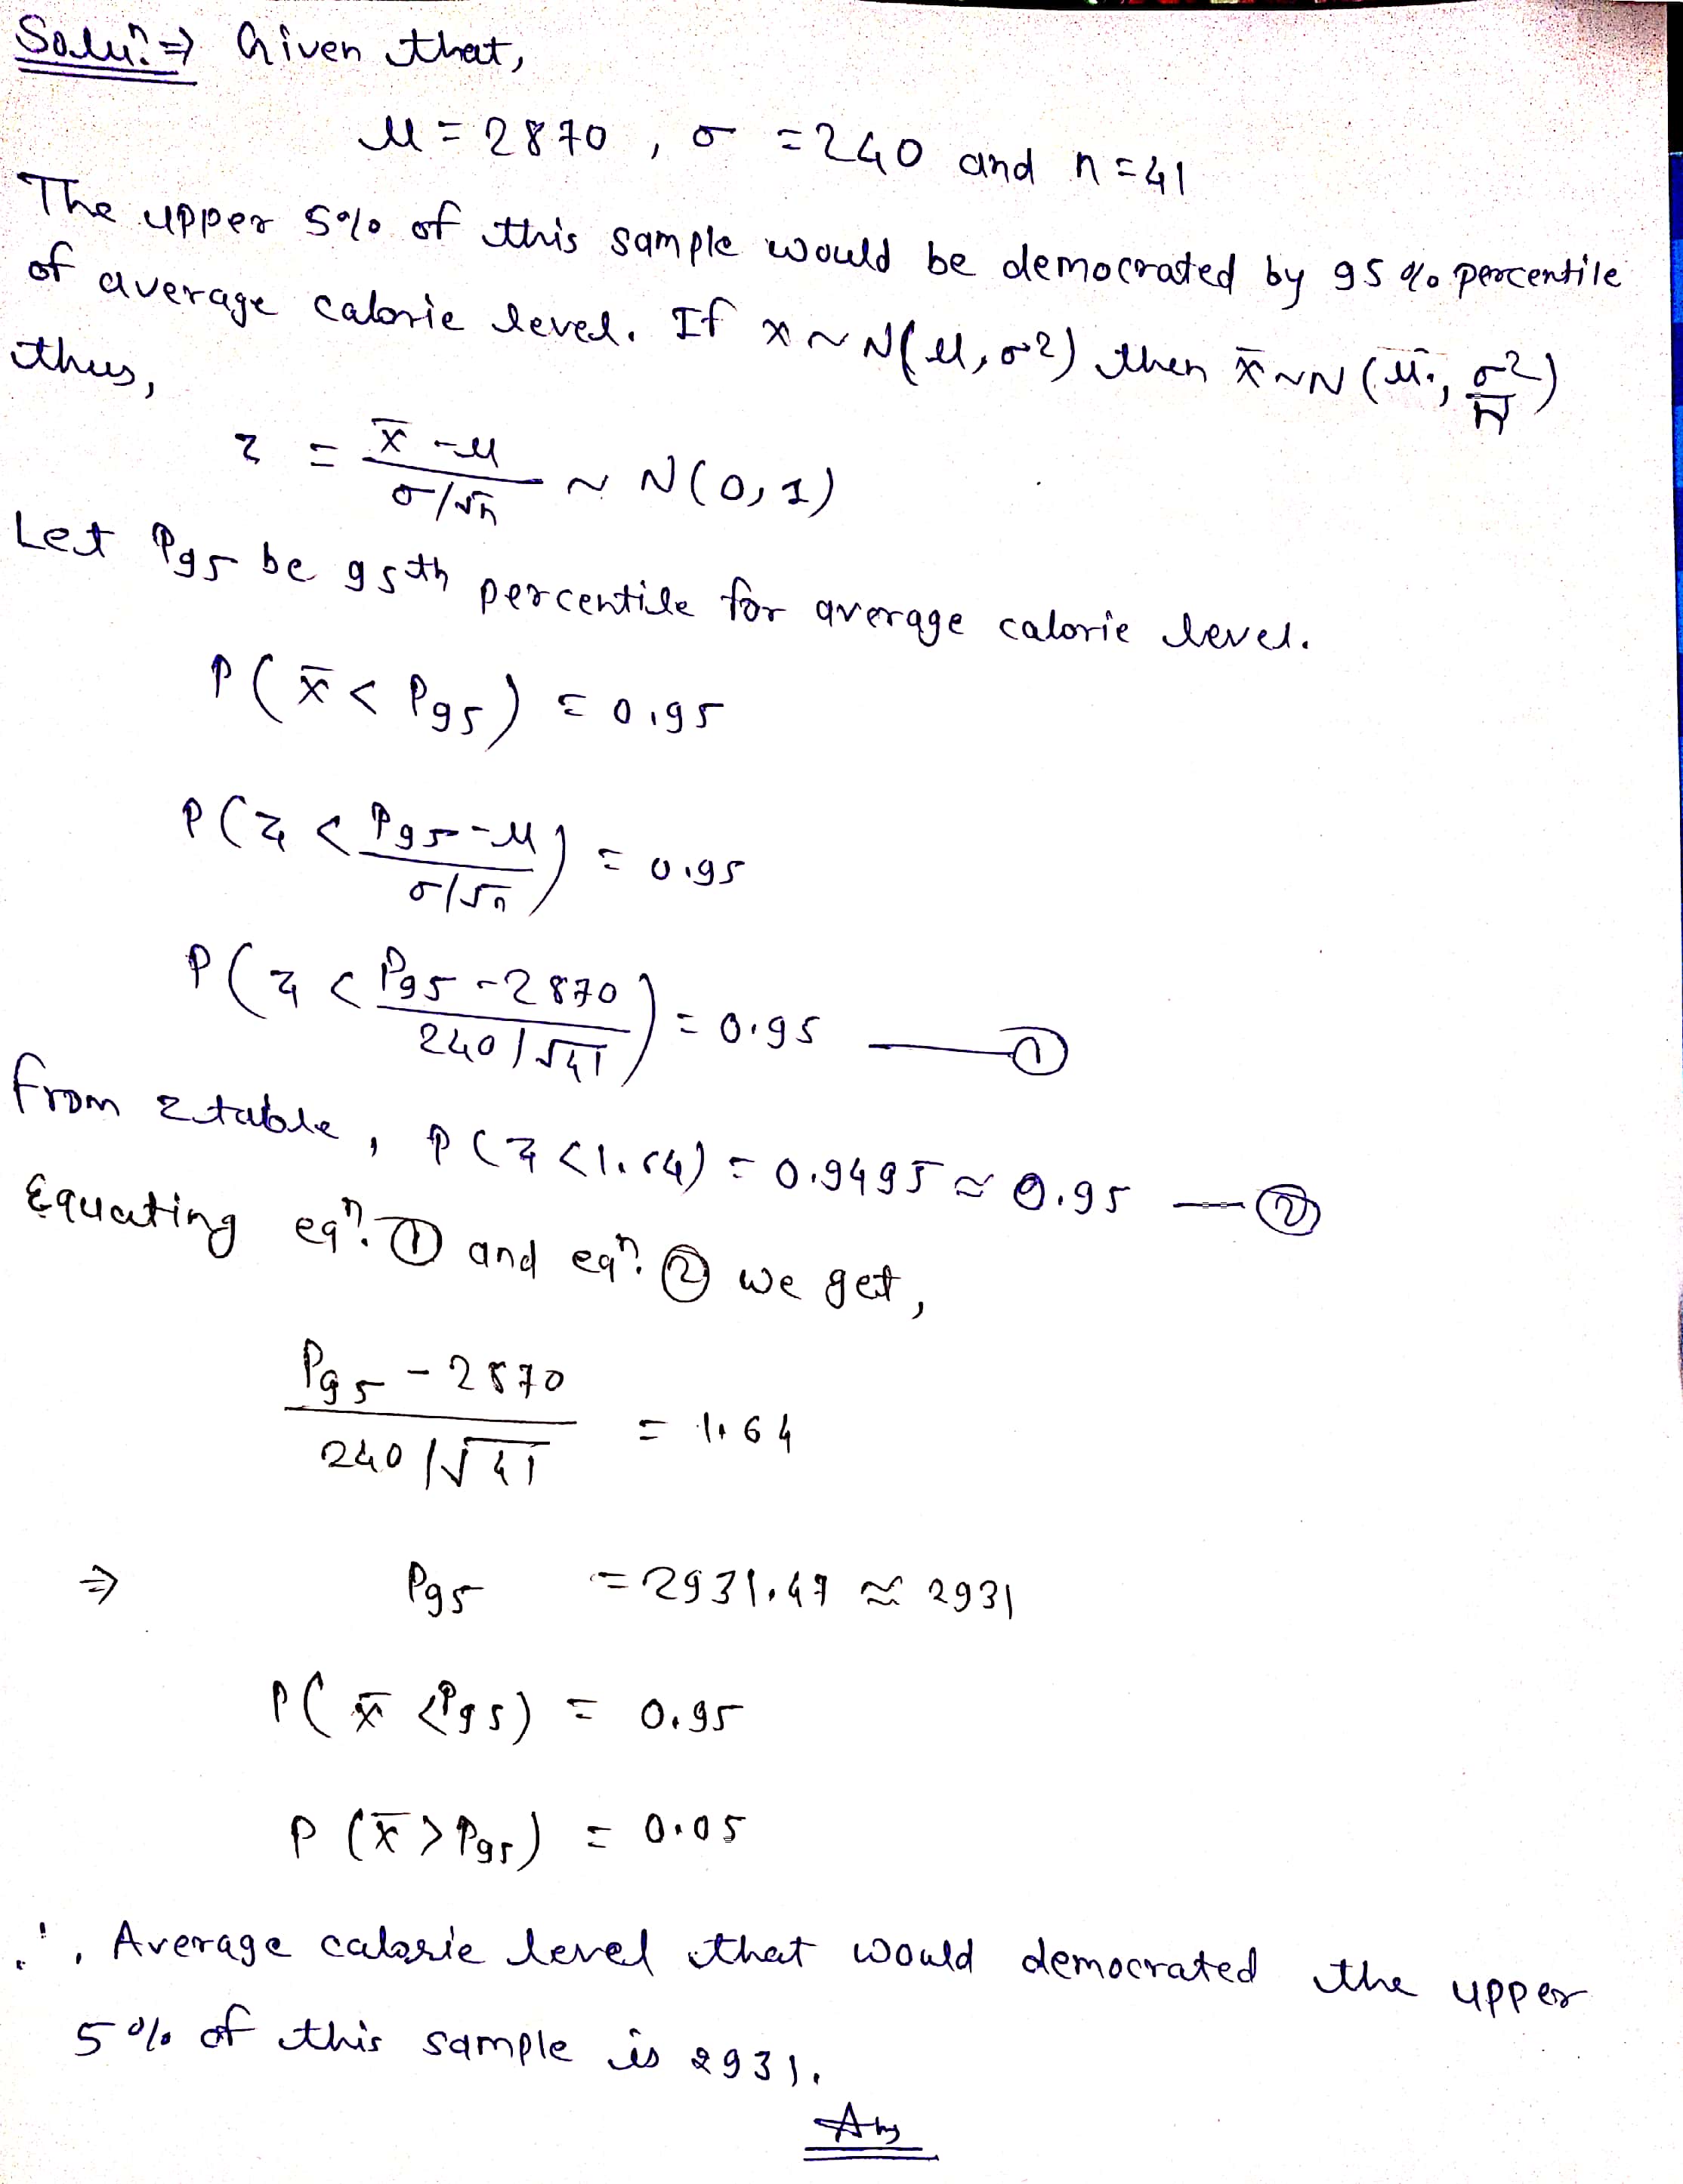 Solun ⇒ Given that,
μ = 2870 , σ = 240 and n = 41
The upper 5% of this sample would be democrated by 95 % percentile
of average calorie level. If x ~ N(μ, σ2) then x̄ ~ N (μ, σ2/n)
thus,
z = (x̄ - μ)/(σ/√n) ~ N(0, 1)
Let P95 be 95th percentile for average calorie level.
P(x̄ < P95) = 0.95
P(z < (P95 - μ)/(σ/√n)) = 0.95
P(z < (P95 - 2870)/(240/√41)) = 0.95 —— ①
from z table, P(z < 1.64) = 0.9495 ≈ 0.95 — ②
Equating eqn. ① and eqn. ② we get,
(P95 - 2870)/(240/√41) = 1.64
⇒ P95 = 2931.47 ≈ 2931
P(x̄ < P95) = 0.95
P(x̄ > P95) = 0.05
∴ Average calorie level that would democrated the upper
5% of this sample is 2931.
Ans